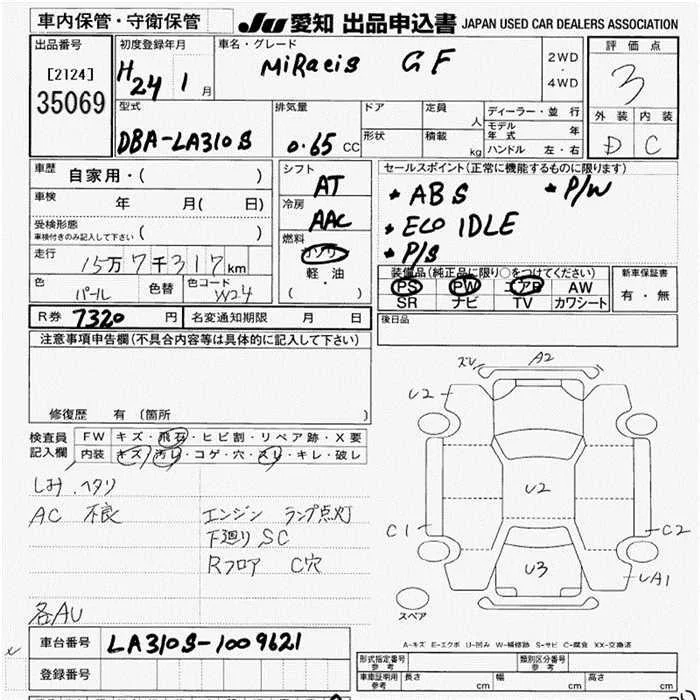 車内保管・守衛保管 JU 愛知 出品申込書 JAPAN USED CAR DEALERS ASSOCIATION
出品番号 初度登録年月 車名・グレード 評価点
[2124] H24 1月 MiRaeis GF 2WD・4WD 3
35069
型式 排気量 ドア 定員 人 ディーラー・並行 外装 内装
DBA-LA310S 0.65 CC 形状 積載 kg モデル年式 年 D C
ハンドル 左・右
車歴 自家用・( ) シフト AT セールスポイント(正常に機能するものに限ります)
車検 年 月( 日) 冷房 AAC *ABS *P/W
受検形態 *ECO IDLE
車検付きのみ記入して下さい ( ) 燃料 ガソリン *P/S
走行 15万7千317km 軽・油 装備品(純正品に限り○をつけてください) 新車保証書
色 パール 色替 色コード W24 ( ) PS PW エアB AW 有・無
SR ナビ TV カワシート
R券 7320円 名変通知期限 月 日 後日品
注意事項申告欄(不具合内容等は具体的に記入して下さい)
ズレ A2
U2
修復歴 有(箇所 )
検査員 FW キズ・飛石・ヒビ割・リペア跡・X要
記入欄 内装 キズ・汚レ・コゲ・穴・スレ・キレ・破レ
シミ・ヘタリ U2
AC 不良 エンジン ランプ点灯
下廻り SC C1 C2
Rフロア C穴 U3 UA1
スペア
各AU
車台番号 LA310S-1009621 A-キズ E-エクボ U-凹み W-補修跡 S-サビ C-腐食 XX-交換済
登録番号 形式指定番号 参考 類別区分番号 参考
車庫証明用 参考 長さ cm 幅 cm 高さ cm